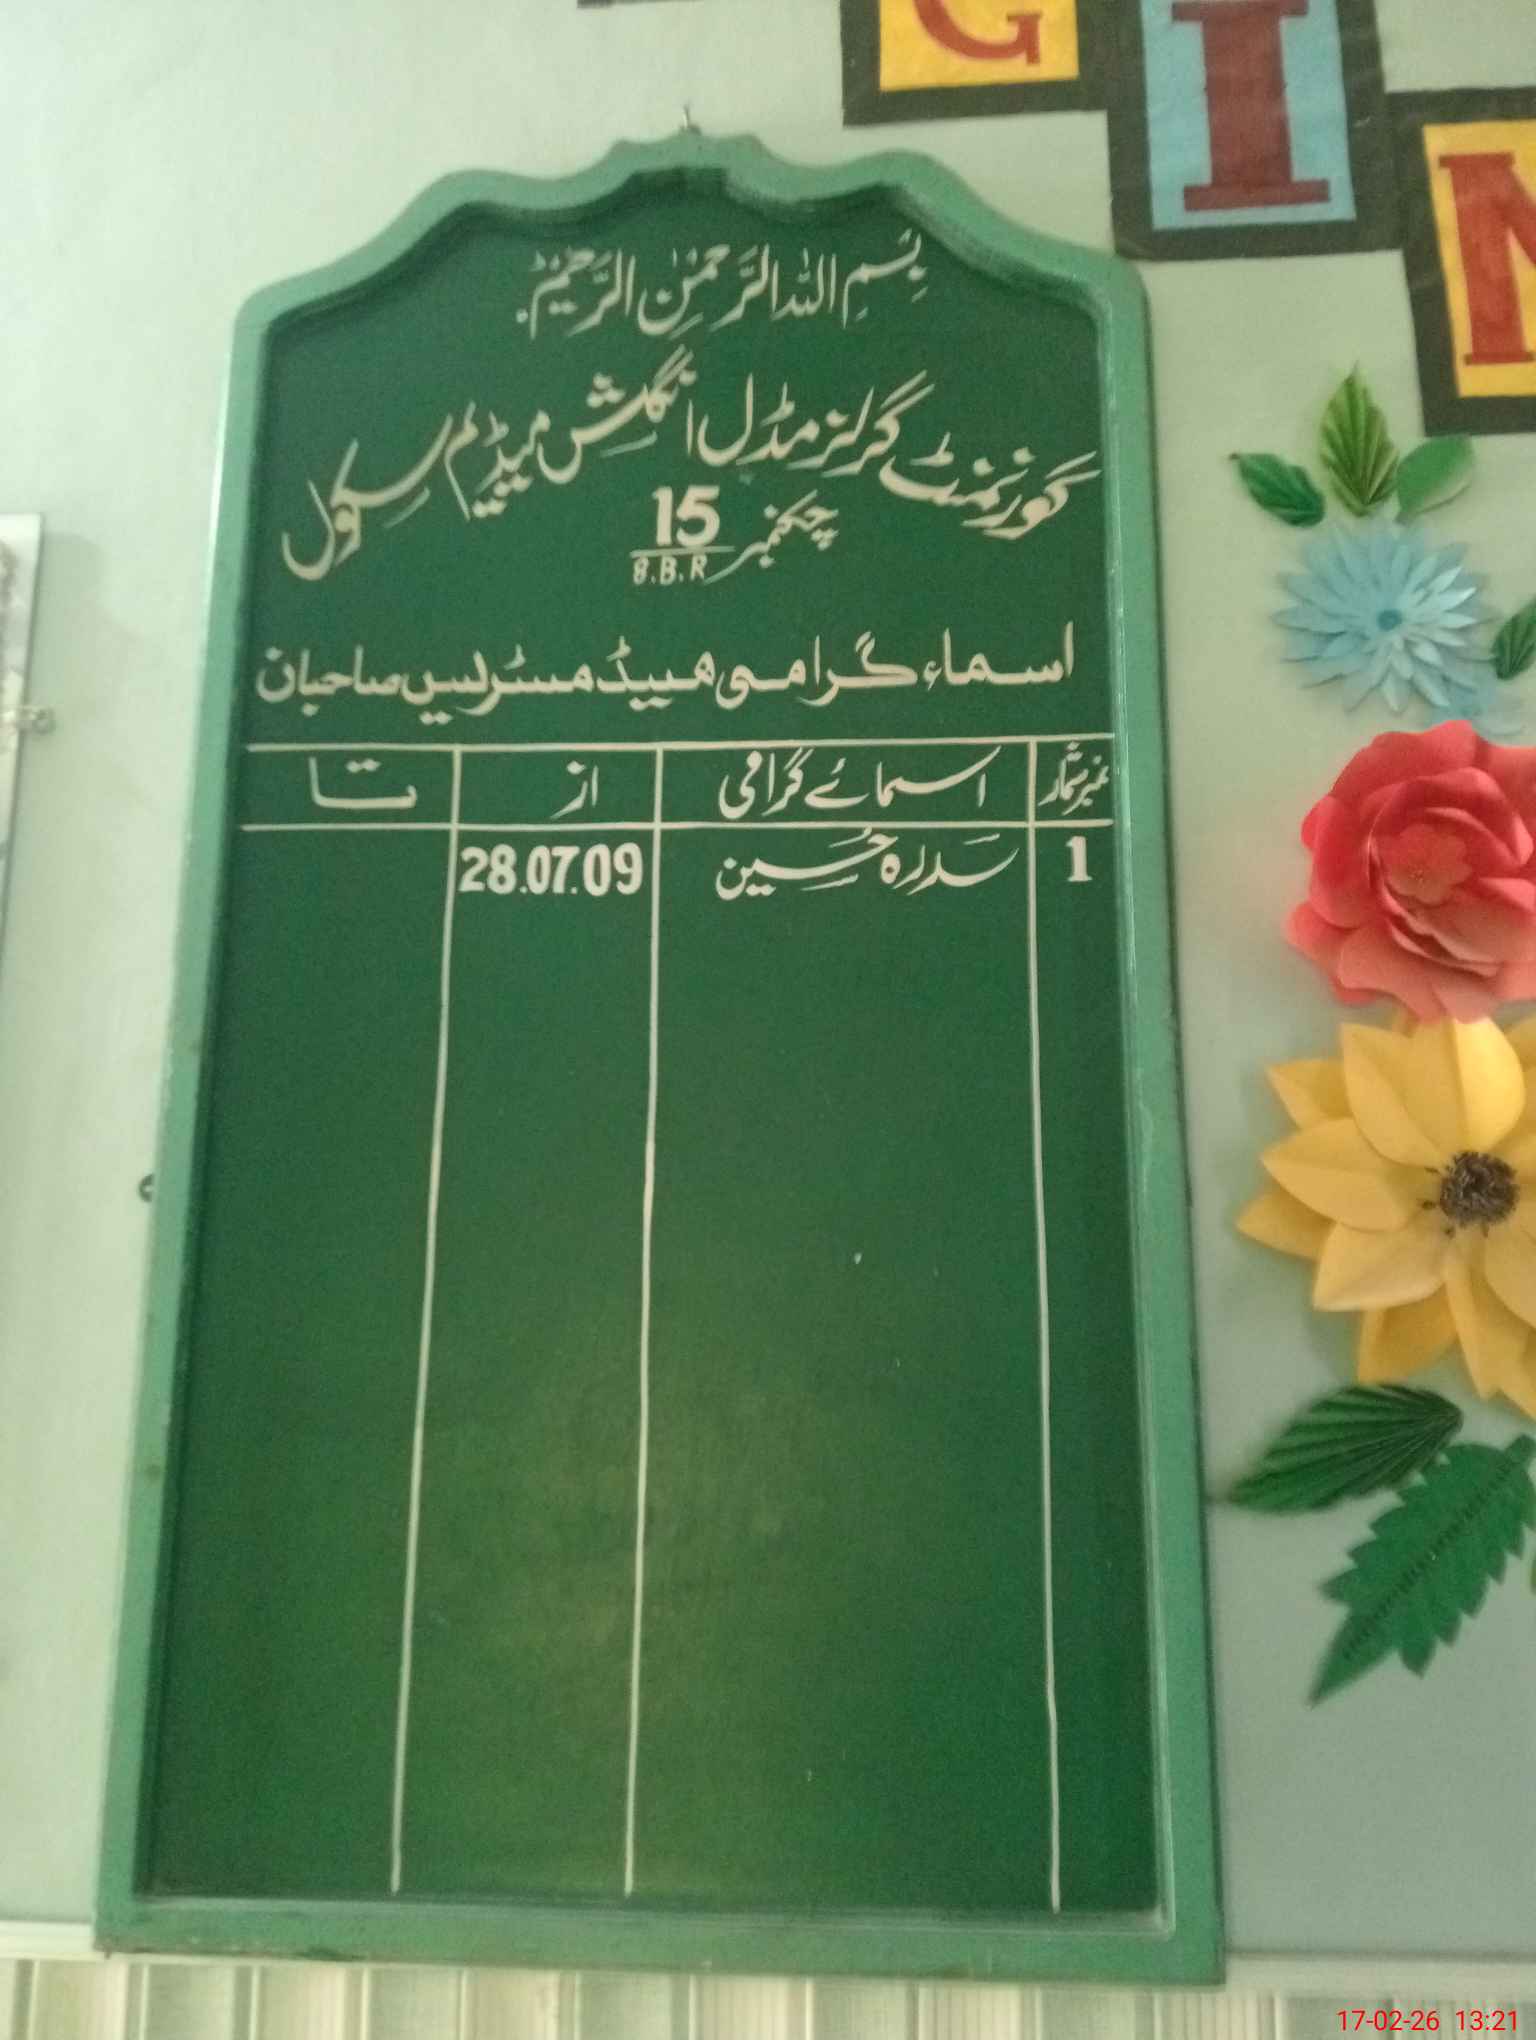 G
I
بِسْمِ اللهِ الرَّحْمٰنِ الرَّحِيْمِ
گورنمنٹ گرلز مڈل انگلش میڈیم سکول
چکنمبر 15
8.B.R
اسماء گرامی ہیڈ مسٹریس صاحبان
نمبر شمار اسمائے گرامی از تا
1 سدرہ حُسین 28.07.09
17-02-26 13:21